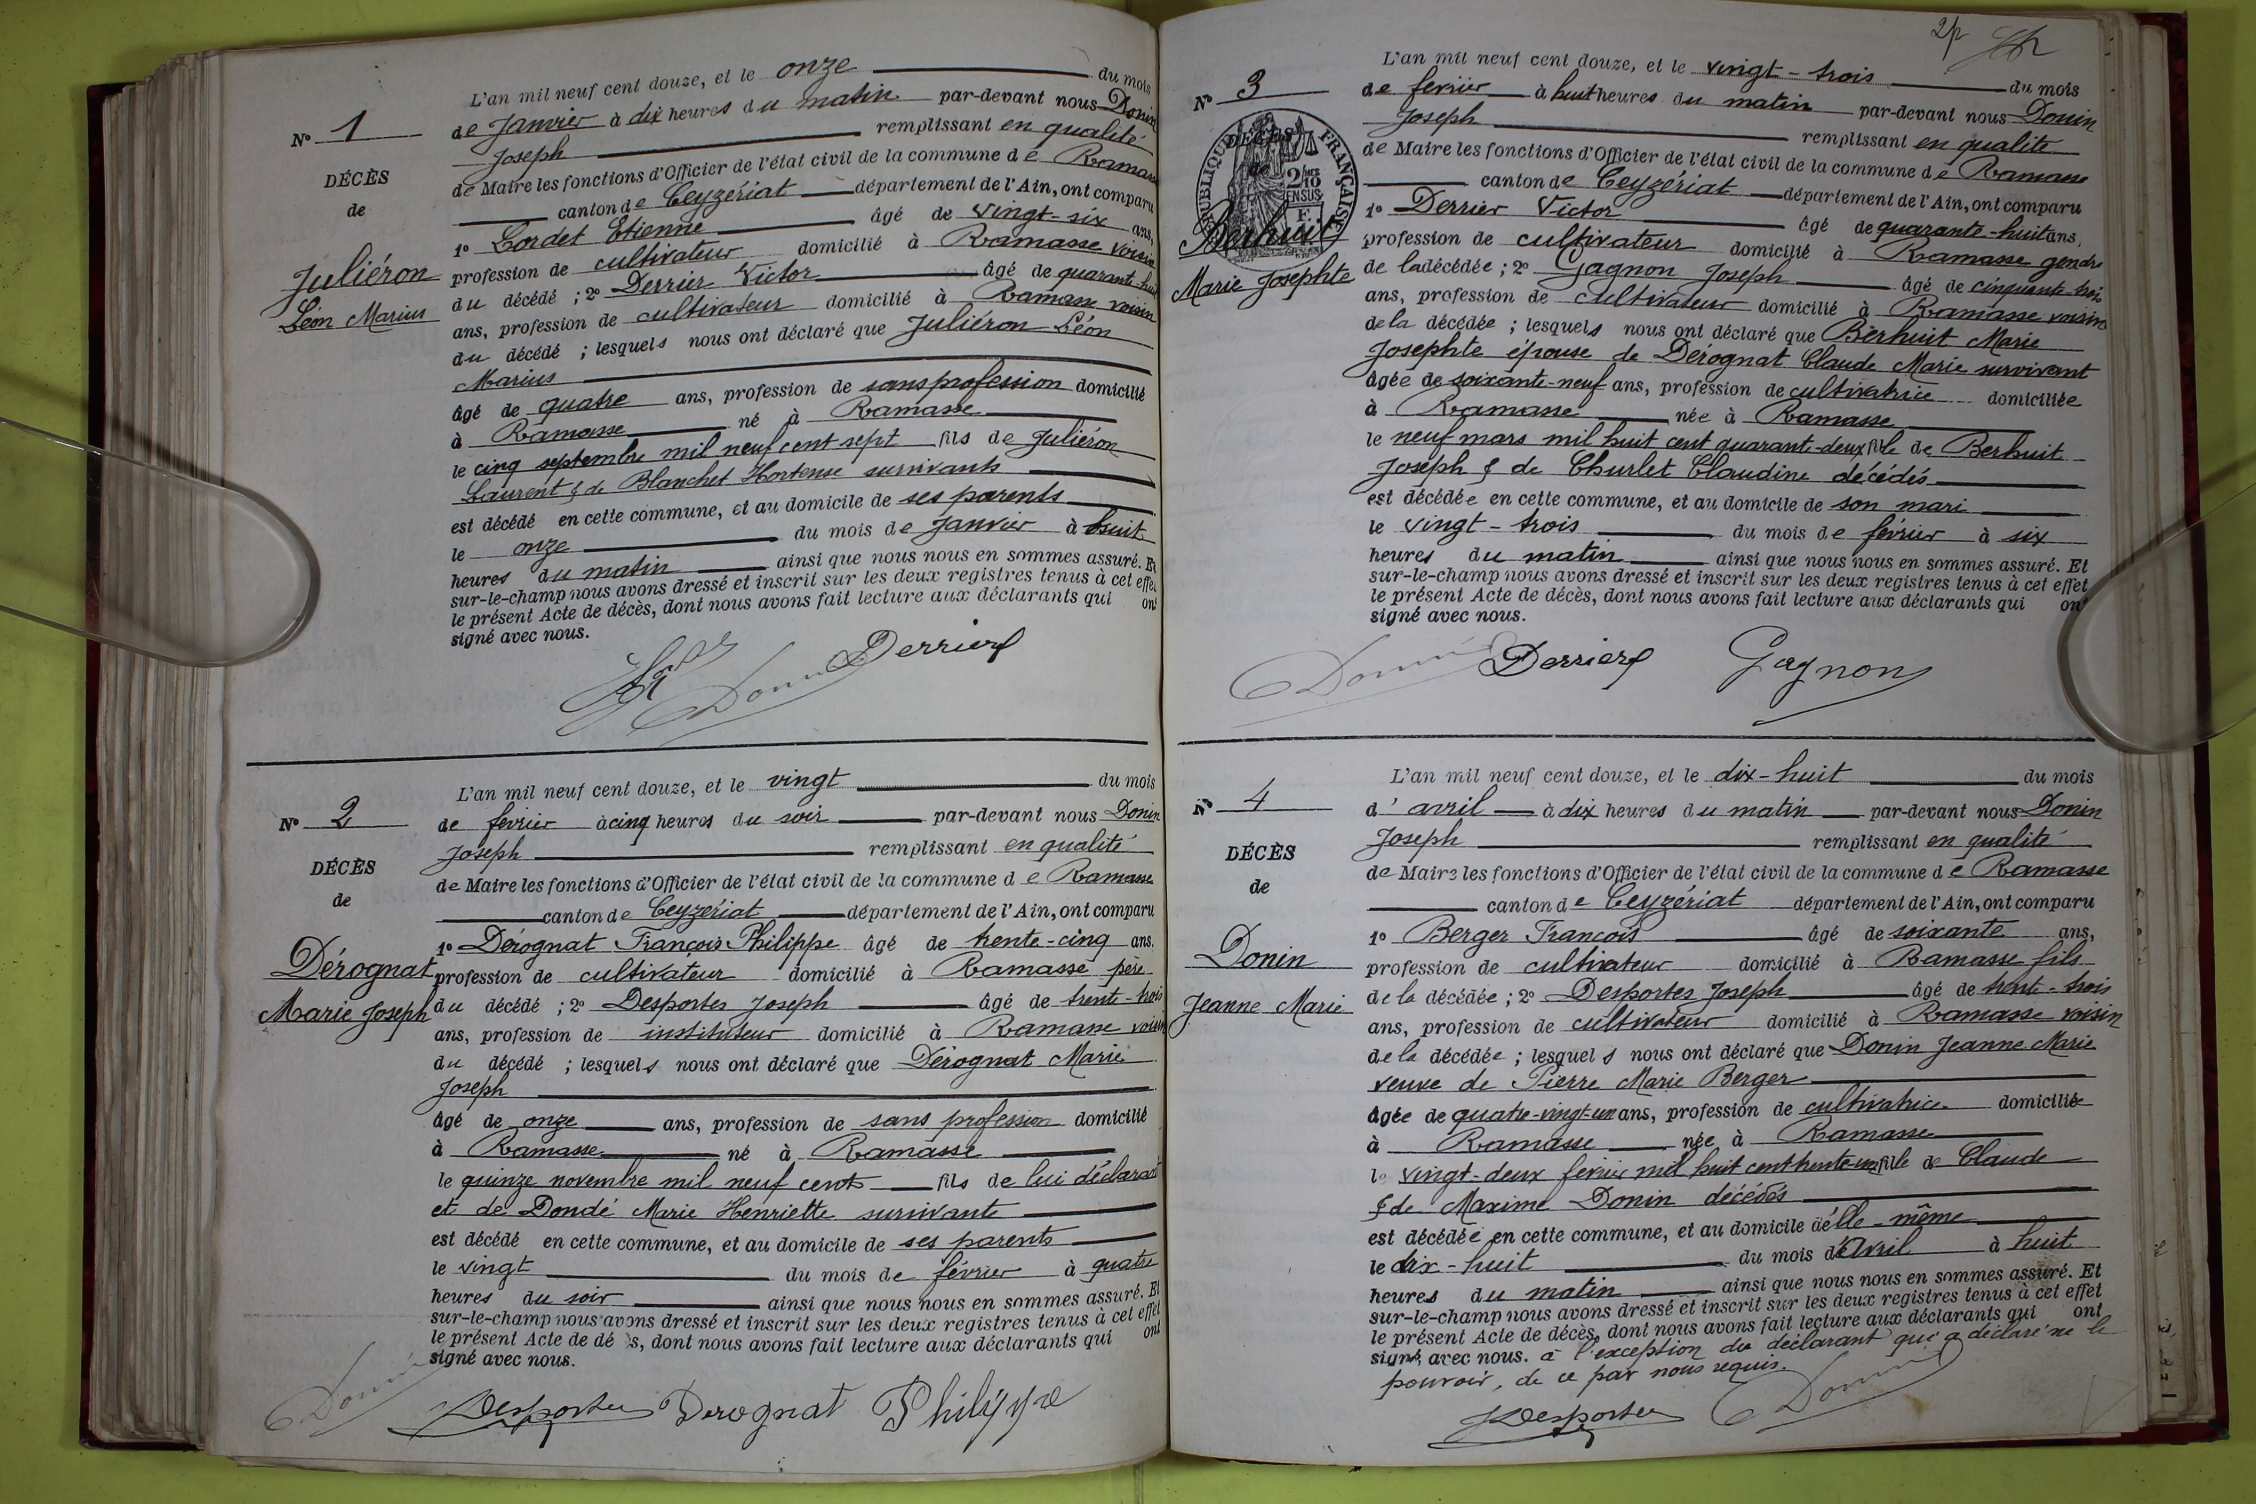 L'an mil neuf cent douze, et le onze du mois
de Janvier à dix heures du matin par-devant nous Donin
Joseph remplissant en qualité
de Maire les fonctions d'Officier de l'état civil de la commune de Ramasse
canton de Ceyzériat département de l'Ain, ont comparu
1º Cordet Etienne âgé de vingt-six ans,
profession de cultivateur domicilié à Ramasse voisin
du décédé ; 2º Derrier Victor âgé de quarante-huit
ans, profession de cultivateur domicilié à Ramasse voisin
du décédé ; lesquels nous ont déclaré que Juliéron Léon
Marius
âgé de quatre ans, profession de sans profession domicilié
à Ramasse né à Ramasse
le cinq septembre mil neuf cent sept fils de Juliéron
Laurent & de Blanchet Hortense survivants
est décédé en cette commune, et au domicile de ses parents
le onze du mois de Janvier à huit
heures du matin ainsi que nous nous en sommes assuré. Et
sur-le-champ nous avons dressé et inscrit sur les deux registres tenus à cet effet
le présent Acte de décès, dont nous avons fait lecture aux déclarants qui ont
signé avec nous.
Nº 1
DÉCÈS
de
Juliéron
Léon Marius
Donin Derrier
L'an mil neuf cent douze, et le vingt du mois
de fevrier à cinq heures du soir par-devant nous Donin
Joseph remplissant en qualité
de Maire les fonctions d'Officier de l'état civil de la commune de Ramasse
canton de Ceyzériat département de l'Ain, ont comparu
1º Dérognat François Philippe âgé de trente-cinq ans.
profession de cultivateur domicilié à Ramasse père
du décédé ; 2º Desportes Joseph âgé de trente-trois
ans, profession de instituteur domicilié à Ramasse voisin
du décédé ; lesquels nous ont déclaré que Dérognat Marie
Joseph
âgé de onze ans, profession de sans profession domicilié
à Ramasse né à Ramasse
le quinze novembre mil neuf cents fils de lui déclarant
et de Dondé Marie Henriette survivante
est décédé en cette commune, et au domicile de ses parents
le vingt du mois de février à quatre
heures du soir ainsi que nous nous en sommes assuré. Et
sur-le-champ nous avons dressé et inscrit sur les deux registres tenus à cet effet
le présent Acte de dé s, dont nous avons fait lecture aux déclarants qui ont
signé avec nous.
Nº 2
DÉCÈS
de
Dérognat
Marie Joseph
Donin Desportes Derognat Philippe
2p
L'an mil neuf cent douze, et le vingt-trois du mois
de fevrier à huit heures du matin par-devant nous Donin
Joseph remplissant en qualité
de Maire les fonctions d'Officier de l'état civil de la commune de Ramasse
canton de Ceyzériat département de l'Ain, ont comparu
1º Derrier Victor âgé de quarante-huit ans,
profession de cultivateur domicilié à Ramasse gendre
de la décédée ; 2º Gagnon Joseph âgé de cinquante-trois
ans, profession de cultivateur domicilié à Ramasse voisin
de la décédée ; lesquels nous ont déclaré que Berhuit Marie
Josephte épouse de Dérognat Claude Marie survivant
âgée de soixante-neuf ans, profession de cultivatrice domiciliée
à Ramasse née à Ramasse
le neuf mars mil huit cent quarante-deux fille de Berhuit
Joseph & de Churlet Claudine décédés
est décédée en cette commune, et au domicile de son mari
le vingt-trois du mois de février à six
heures du matin ainsi que nous nous en sommes assuré. Et
sur-le-champ nous avons dressé et inscrit sur les deux registres tenus à cet effet
le présent Acte de décès, dont nous avons fait lecture aux déclarants qui ont
signé avec nous.
Nº 3
DÉCÈS
de
RÉPUBLIQUE FRANÇAISE
2/10
EN SUS
Berhuit
Marie Josephte
Donin Derrier Gagnon
L'an mil neuf cent douze, et le dix-huit du mois
d'avril à dix heures du matin par-devant nous Donin
Joseph remplissant en qualité
de Maire les fonctions d'Officier de l'état civil de la commune de Ramasse
canton de Ceyzériat département de l'Ain, ont comparu
1º Berger François âgé de soixante ans,
profession de cultivateur domicilié à Ramasse fils
de la décédée ; 2º Desportes Joseph âgé de trente-trois
ans, profession de cultivateur domicilié à Ramasse voisin
de la décédée ; lesquels nous ont déclaré que Donin Jeanne Marie
veuve de Pierre Marie Berger
âgée de quatre-vingt-un ans, profession de cultivatrice domiciliée
à Ramasse née à Ramasse
le vingt-deux fevrier mil huit cent trente-un fille de Claude
& de Maxime Donin décédés
est décédée en cette commune, et au domicile d'elle-même
le dix-huit du mois d'Avril à huit
heures du matin ainsi que nous nous en sommes assuré. Et
sur-le-champ nous avons dressé et inscrit sur les deux registres tenus à cet effet
le présent Acte de décès, dont nous avons fait lecture aux déclarants qui ont
signé avec nous. à l'exception du déclarant qui a déclaré ne le
pouvoir, de ce par nous requis.
Nº 4
DÉCÈS
de
Donin
Jeanne Marie
Desportes Donin